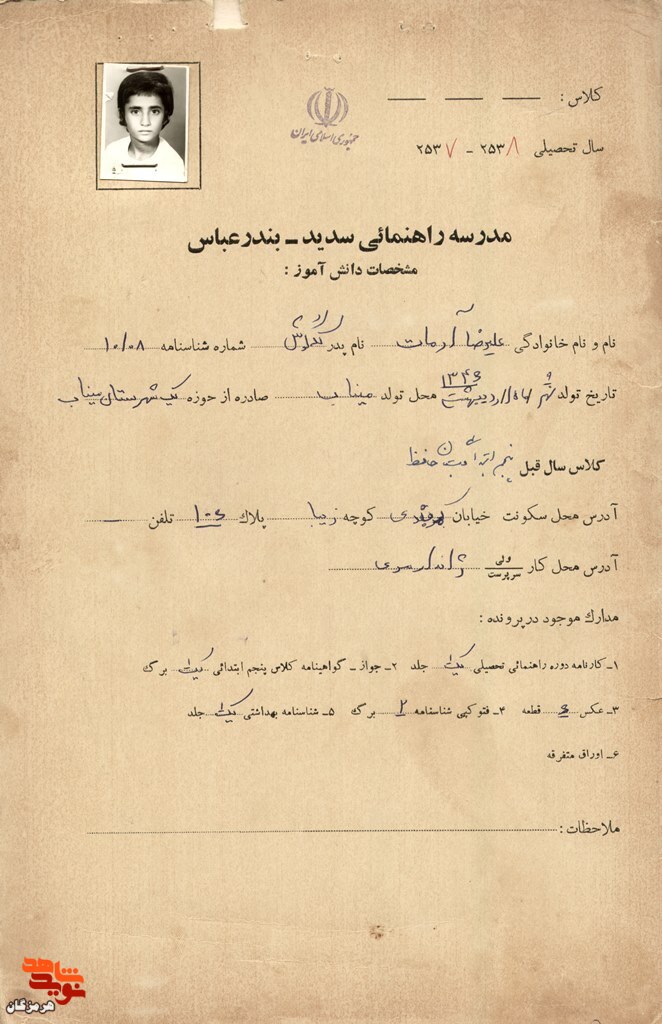 کلاس :
جمهوری اسلامی ایران
سال تحصیلی ۲۵۳۸ - ۲۵۳۷
مدرسه راهنمائی سدید - بندرعباس
مشخصات دانش آموز :
نام و نام خانوادگی علیرضا آرمات نام پدر شماره شناسنامه ۱۰/۰۸
تاریخ تولد نهم ماه اردیبهشت ۱۳۴۶ محل تولد میناب صادره از حوزه یک شهرستان میناب
کلاس سال قبل پنجم حافظ
آدرس محل سکونت خیابان کوچه زیبا پلاک ۱۰۶ تلفن
آدرس محل کار ولی سرپرست ژاندارمری
مدارک موجود در پرونده :
۱ـ کارنامه دوره راهنمائی تحصیلی یک جلد ۲ـ جواز ـ گواهینامه کلاس پنجم ابتدائی یک برگ
۳ـ عکس ۶ قطعه ۴ـ فتوکپی شناسنامه ۲ برگ ۵ـ شناسنامه بهداشتی یک جلد
۶ـ اوراق متفرقه
ملاحظات :
نوید شاهد
هرمزگان